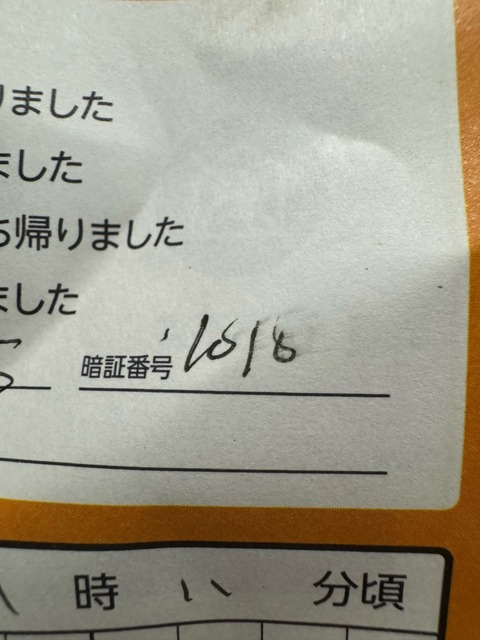 りました
ました
ち帰りました
ました
5 暗証番号 1018
時 分頃